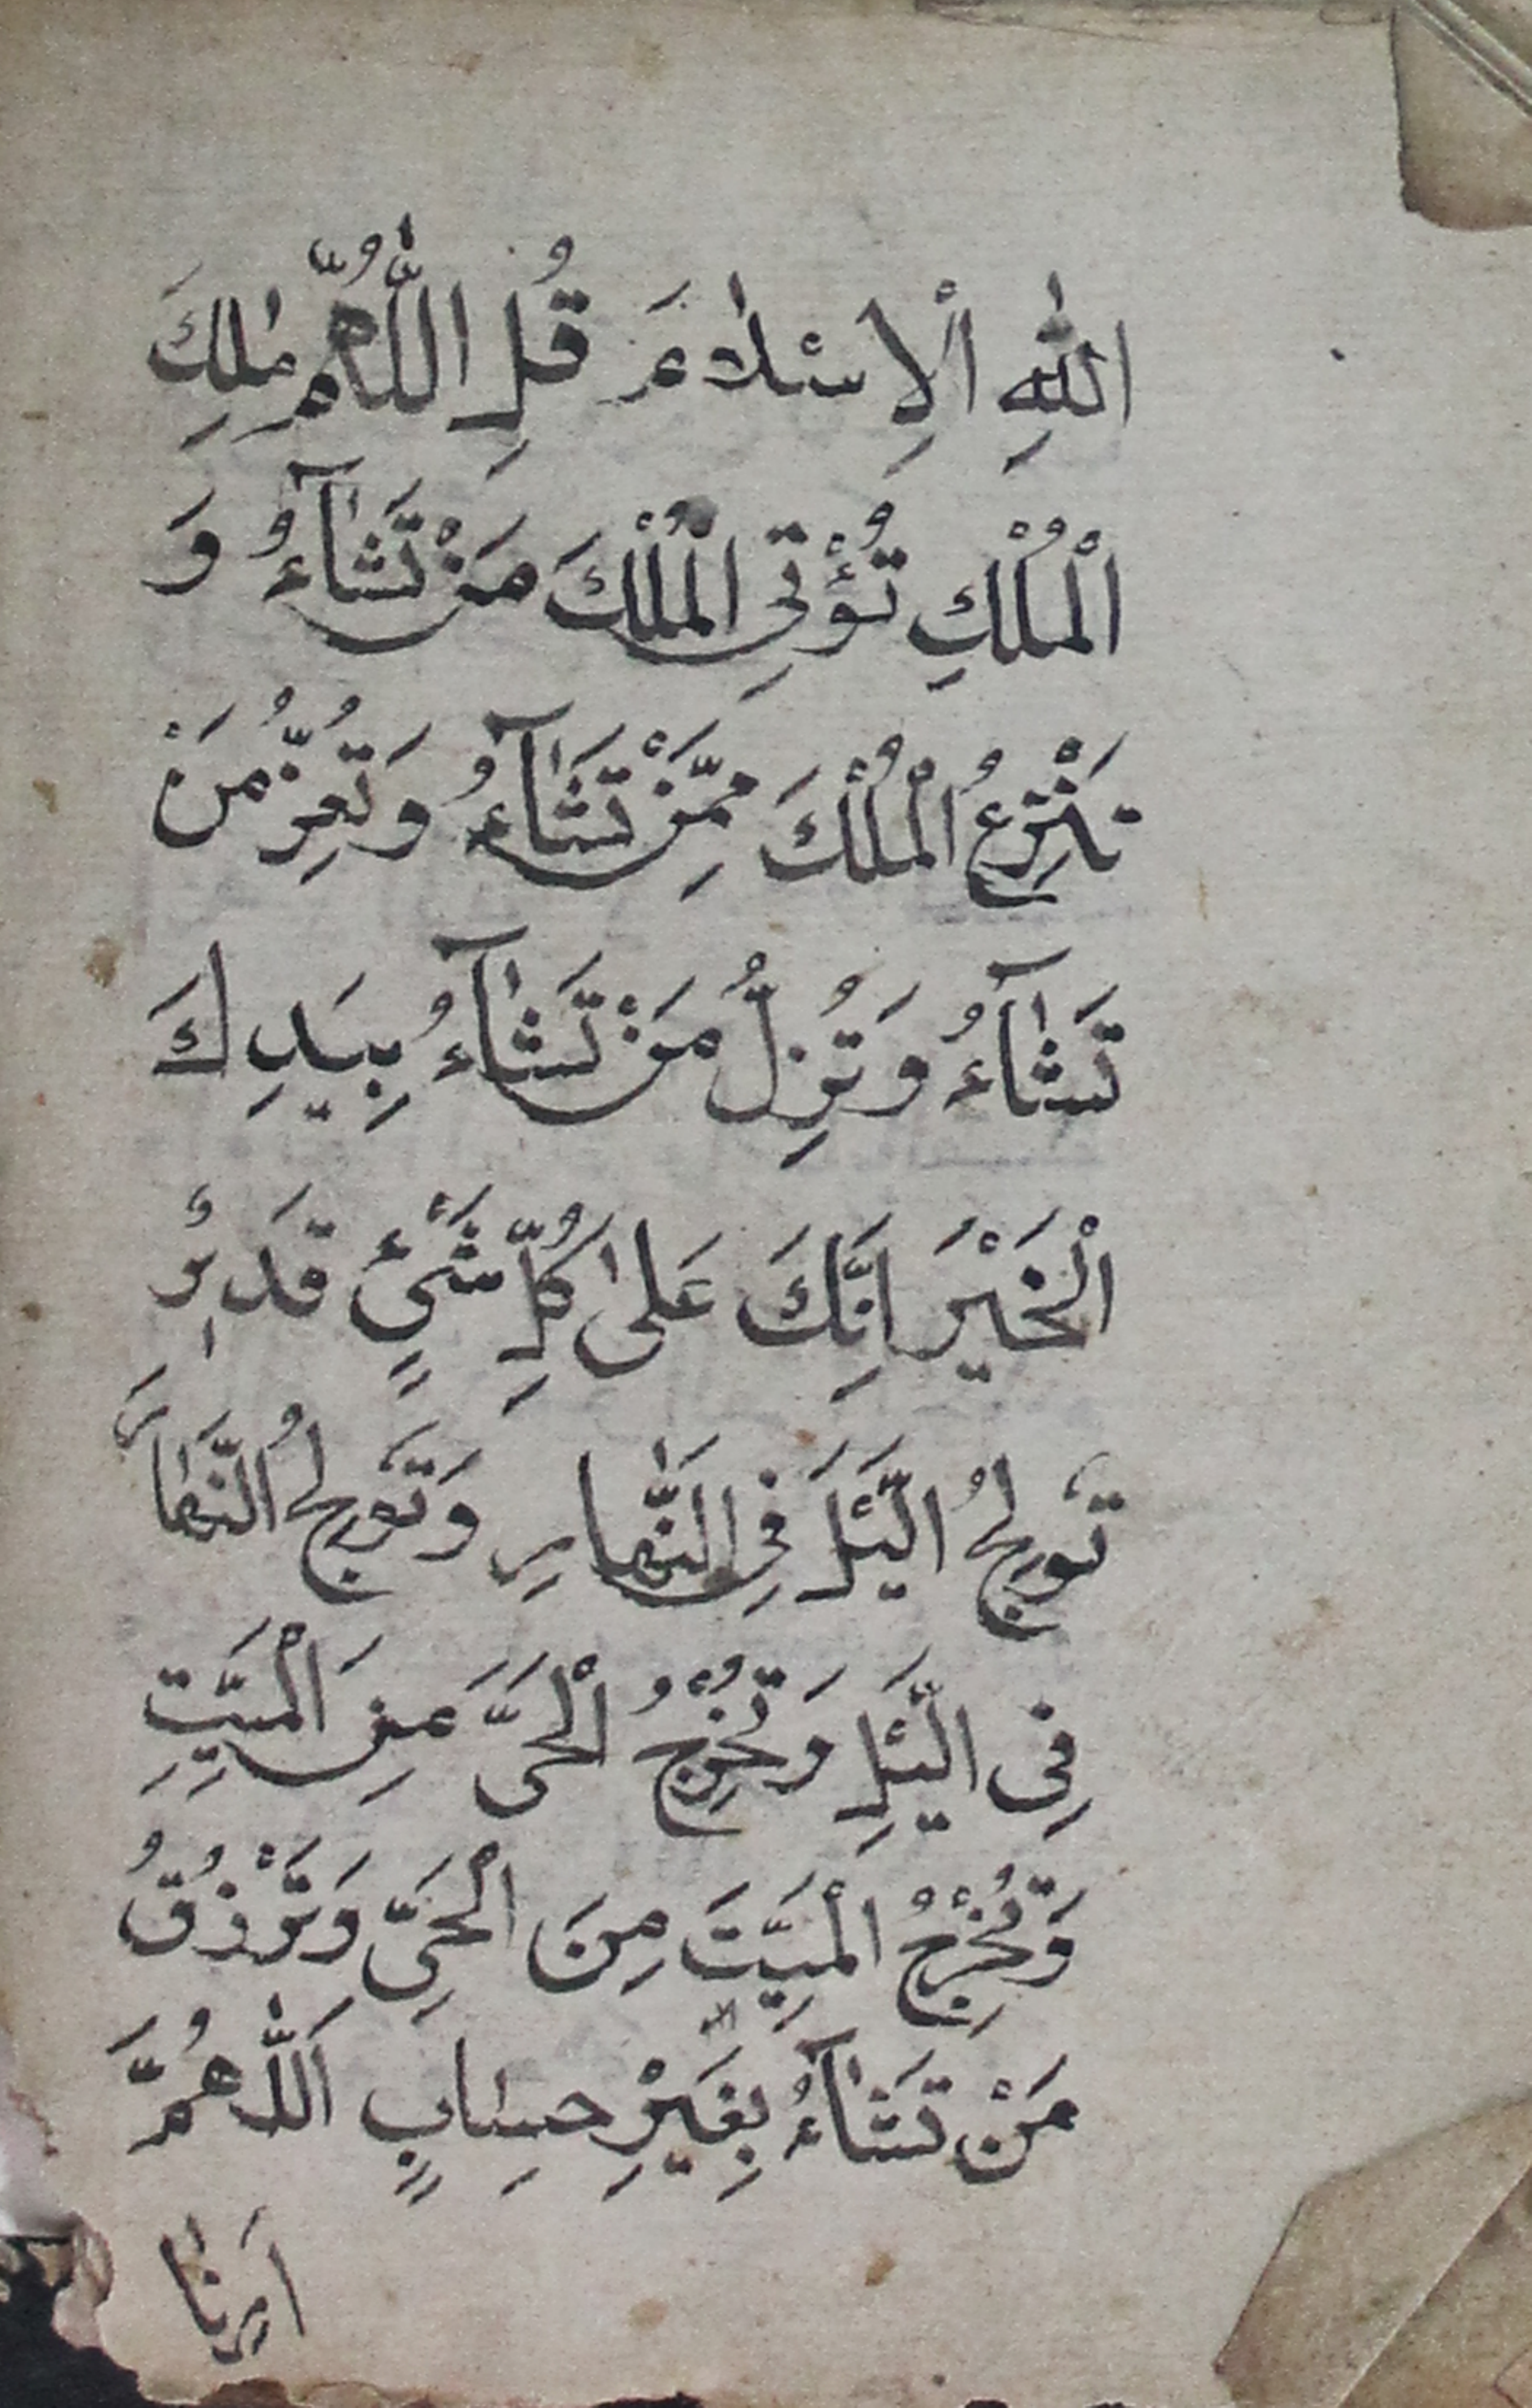 اللّٰهِ الْاِسْلَامَ قُلِ اللّٰهُمَّ مٰلِكَ
الْمُلْكِ تُؤْتِى الْمُلْكَ مَنْ تَشَآءُ وَ
تَنْزِعُ الْمُلْكَ مِمَّنْ تَشَآءُ وَتُعِزُّ مَنْ
تَشَآءُ وَتُزِلُّ مَنْ تَشَآءُ بِيَدِكَ
الْخَيْرُ اِنَّكَ عَلٰى كُلِّ شَيْئٍ قَدِيْرٌ
تُولِجُ الَّيْلَ فِى النَّهَارِ وَتُولِجُ النَّهَارَ
فِى الَّيْلِ وَتُخْرِجُ الْحَىَّ مِنَ الْمَيِّتِ
وَتُخْرِجُ الْمَيِّتَ مِنَ الْحَىِّ وَتَرْزُقُ
مَنْ تَشَآءُ بِغَيْرِ حِسَابٍ اَللّٰهُمَّ
اَرِنَا